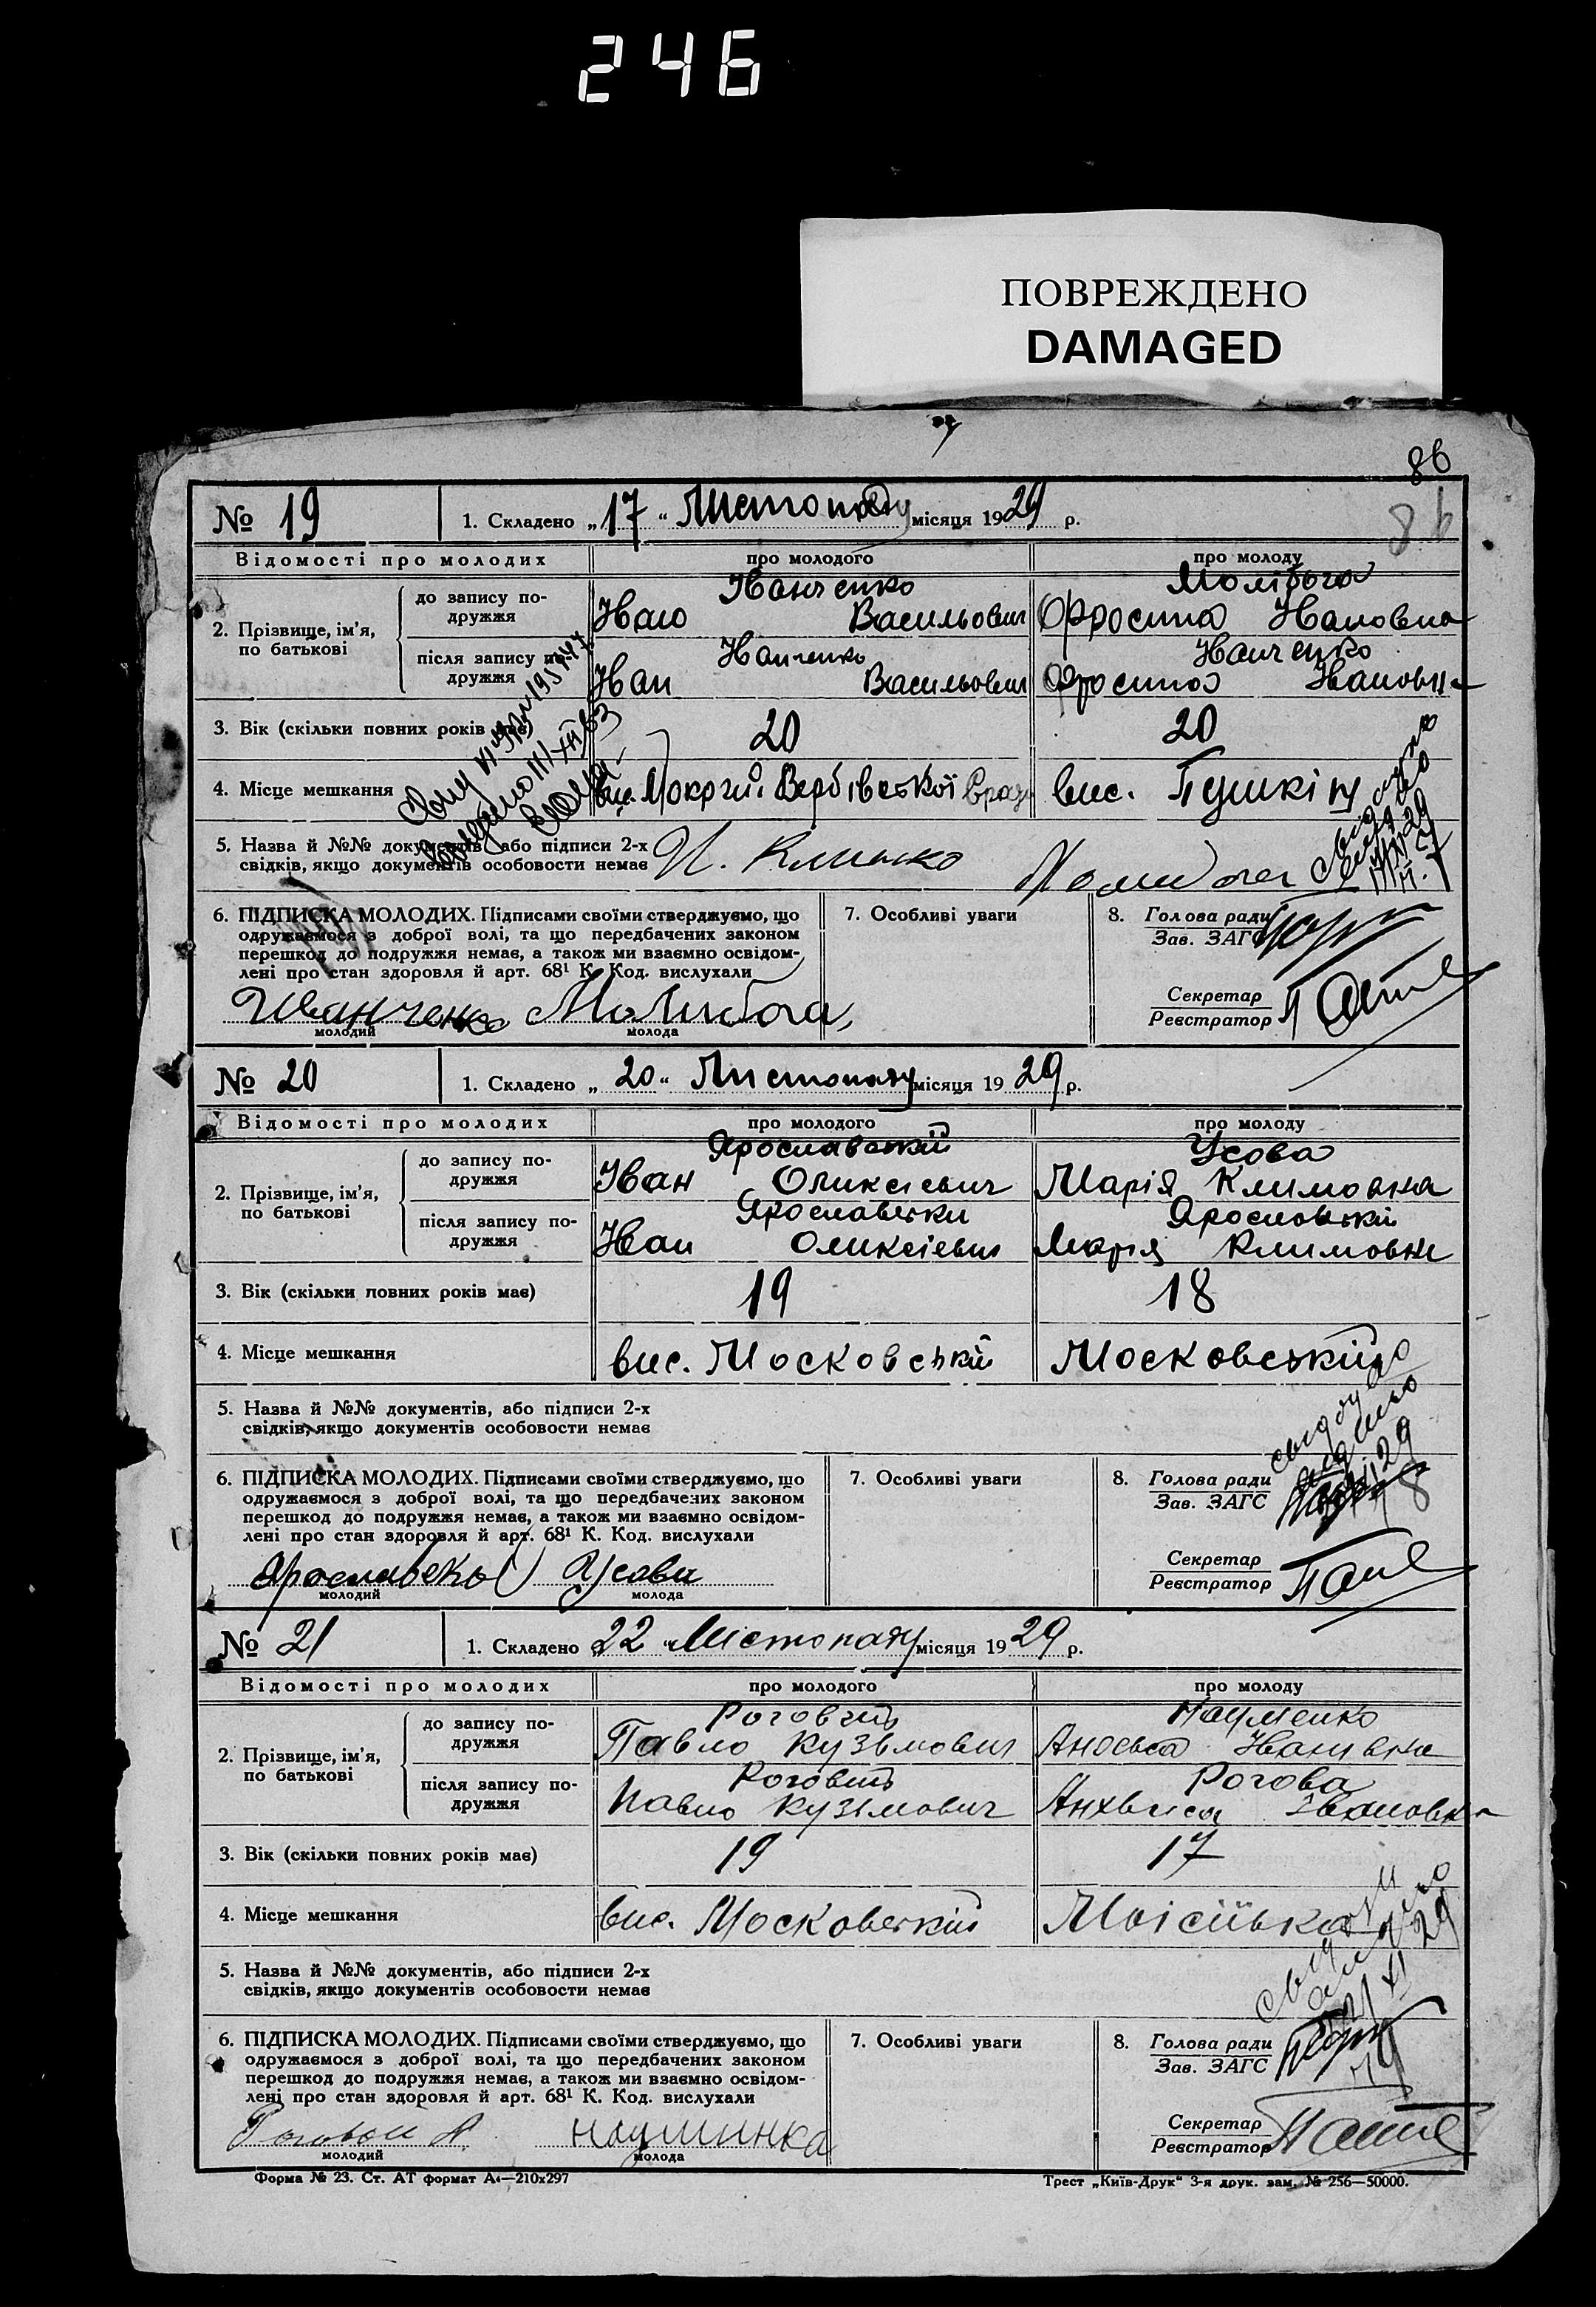 246
ПОВРЕЖДЕНО
DAMAGED
86
86
№ 19 1. Складено „17“ Листопаду місяця 1929 р.
Відомості про молодих про молодого про молоду
Іванченко Молібога
до запису по-
дружжя
Иван Васильович Фросина Ивановна
2. Прізвище, ім'я,
по батькові
Иванченко Иванченко
після запису по-
дружжя
Иван Васильович Фросина Ивановна
3. Вік (скільки повних років має) 20 20
4. Місце мешкання вис. Мокрий Вербівської вис. Пушкін
5. Назва й №№ документів або підписи 2-х
свідків, якщо документів особовости немає
6. ПІДПИСКА МОЛОДИХ. Підписами своїми стверджуємо, що
одружаємося з доброї волі, та що передбачених законом
перешкод до подружжя немає, а також ми взаємно освідом-
лені про стан здоровля й арт. 68¹ К. Код. вислухали
Иванченко Молибога
молодий молода
7. Особливі уваги
8. Голова ради
Зав. ЗАГС
Секретар
Реєстратор
№ 20 1. Складено „20“ Листопаду місяця 1929 р.
Відомості про молодих про молодого про молоду
Ярославский Усова
до запису по-
дружжя
Іван Оликсієвич Марія Климовна
2. Прізвище, ім'я,
по батькові
Ярославски Ярославскій
після запису по-
дружжя
Иван Оликсієвич Марія Климовна
3. Вік (скільки повних років має) 19 18
4. Місце мешкання вис. Московський Московський
5. Назва й №№ документів, або підписи 2-х
свідків, якщо документів особовости немає
6. ПІДПИСКА МОЛОДИХ. Підписами своїми стверджуємо, що
одружаємося з доброї волі, та що передбачених законом
перешкод до подружжя немає, а також ми взаємно освідом-
лені про стан здоровля й арт. 68¹ К. Код. вислухали
Ярославскы Усова
молодий молода
7. Особливі уваги
8. Голова ради
Зав. ЗАГС
Секретар
Реєстратор
№ 21 1. Складено 22 “Містопаду місяця 1929 р.
Відомості про молодих про молодого про молоду
Роговий Науменко
до запису по-
дружжя
Павло Кузьмович Ивановна
2. Прізвище, ім'я,
по батькові
Роговий Рогова
після запису по-
дружжя
Павло Кузьмович Анхвиса Івановна
3. Вік (скільки повних років має) 19 17
4. Місце мешкання вис. Московський Моісіївка
5. Назва й №№ документів, або підписи 2-х
свідків, якщо документів особовости немає
6. ПІДПИСКА МОЛОДИХ. Підписами своїми стверджуємо, що
одружаємося з доброї волі, та що передбачених законом
перешкод до подружжя немає, а також ми взаємно освідом-
лені про стан здоровля й арт. 68¹ К. Код. вислухали
Роговой П наушинка
молодий молода
7. Особливі уваги
8. Голова ради
Зав. ЗАГС
Секретар
Реєстратор
Форма № 23. Ст. АТ формат А4—210х297 Трест „Київ-Друк“ 3-я друк. зам. № 256—50000.